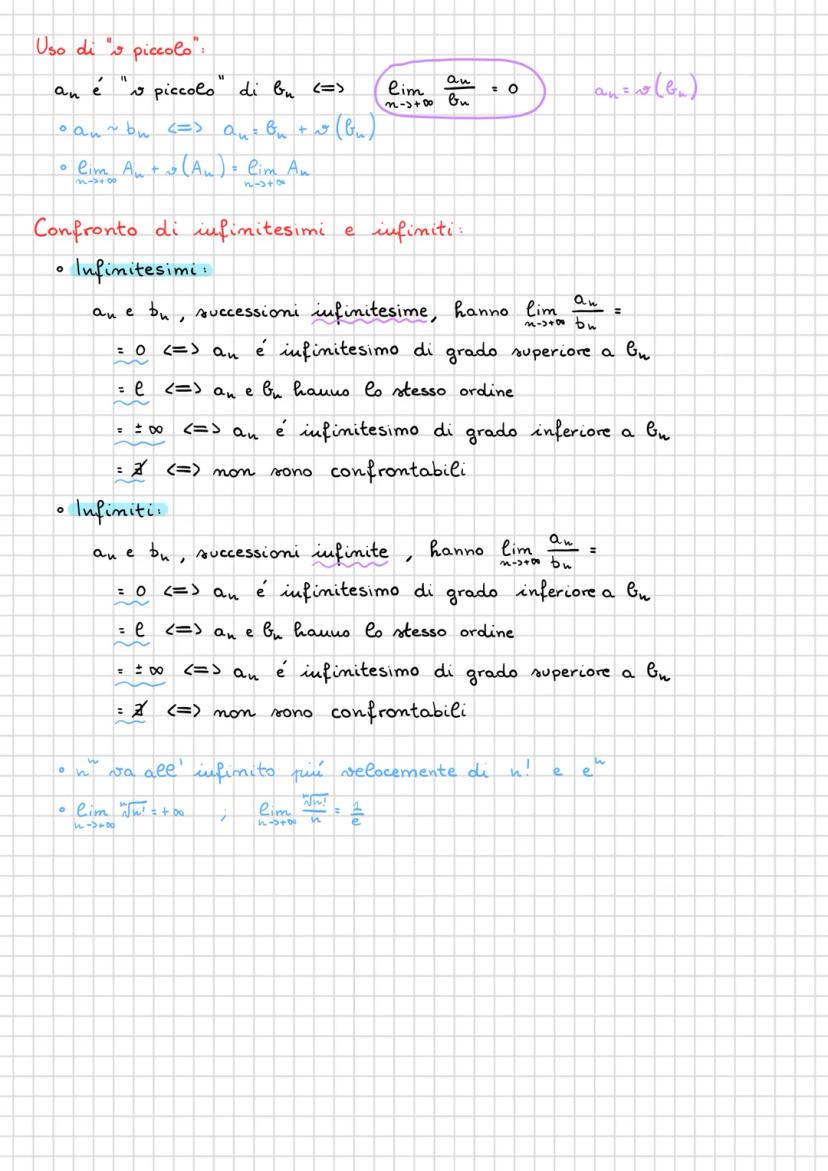 Uso di "o piccolo":
an é "o piccolo" di bn <=> lim n->+∞ an/bn = 0 an = o(bn)
• an ~ bn <=> an = bn + o(bn)
• lim n->+∞ An + o(An) = lim n->+∞ An
Confronto di infinitesimi e infiniti:
• Infinitesimi:
an e bn, successioni infinitesime, hanno lim n->+∞ an/bn =
= 0 <=> an é infinitesimo di grado superiore a bn
= l <=> an e bn hanno lo stesso ordine
= ±∞ <=> an é infinitesimo di grado inferiore a bn
= ∄ <=> non sono confrontabili
• Infiniti:
an e bn, successioni infinite, hanno lim n->+∞ an/bn =
= 0 <=> an é infinitesimo di grado inferiore a bn
= l <=> an e bn hanno lo stesso ordine
= ±∞ <=> an é infinitesimo di grado superiore a bn
= ∄ <=> non sono confrontabili
• n^n va all' infinito piú velocemente di n! e e^n
• lim n->+∞ ⁿ√n! = +∞ ; lim n->+∞ ⁿ√n!/n = 1/e